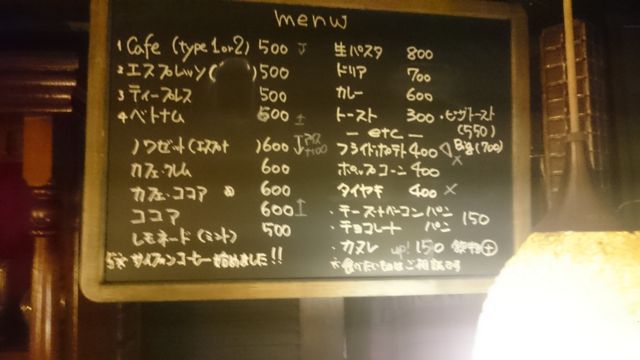 menu
1 Cafe (type 1 or 2) 500
2 エスプレッソ( ) 500
3 ティープレス 500
4 ベトナム 500
ノワゼット(エスプレッソ) 600 アイス +100
カフェ・クレム 600
カフェ・ココア 600
ココア 600
レモネード(ミント) 500
サイフォンコーヒー始めました!!
生パスタ 800
ドリア 700
カレー 600
トースト 300 ・ピザトースト
(550)
— etc —
フライドポテト 400 Big(700)
ポップコーン 400
タイヤキ 400 ×
・チーズ+ベーコン パン 150
・チョコレート パン
・カヌレ up! 150 飲物+
※食べたいものはご相談で可